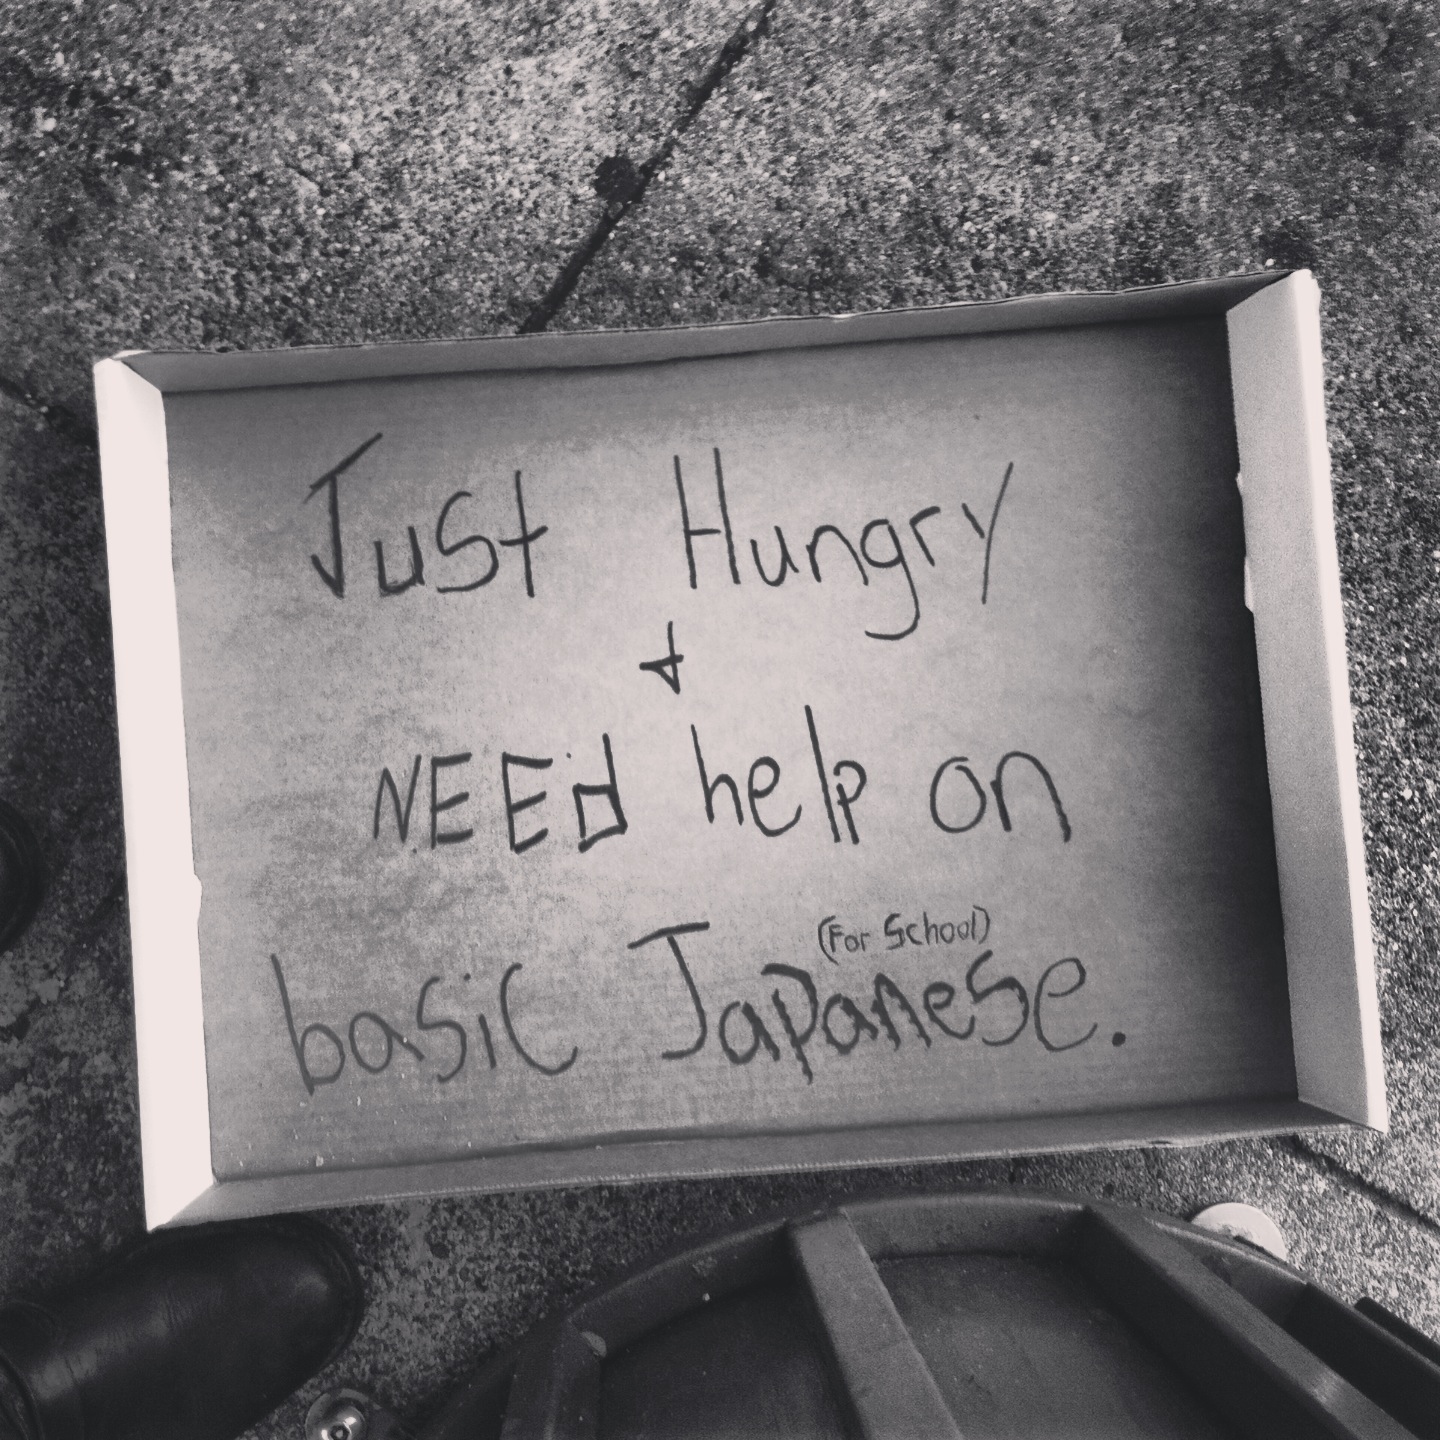 Just Hungry
+
NEEd help on
(For School)
basic Japanese.